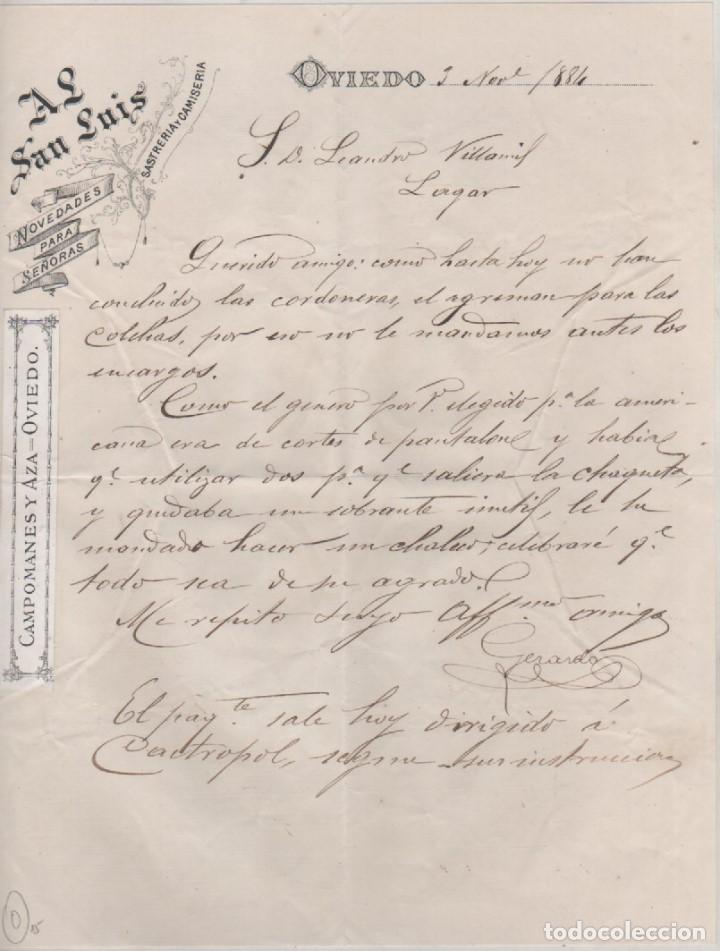 AL
San Luis
SASTRERIA Y CAMISERIA
NOVEDADES
PARA
SEÑORAS
CAMPOMANES Y AZA=OVIEDO.
OVIEDO 3 Nov.e 1884
S. D. Leandro Villamil
Lagar
Querido amigo: como hasta hoy no han
concluido las cordoneras, el agreman para las
colchas, por eso no le mandamos antes los
encargos.
Como el genero por V. elegido p.a la ameri-
cana era de cortes de pantalone y habia
q.e utilizar dos p.a q.e saliera la chaqueta,
y quedaba un sobrante inutil, le he
mandado hacer un chaleco; celebraré q.e
todo sea de su agrado.
Me repito suyo Aff.mo amigo
Gerardo
El paq.te sale hoy dirigido á
Castropol, segun sus instruccion
todocoleccion